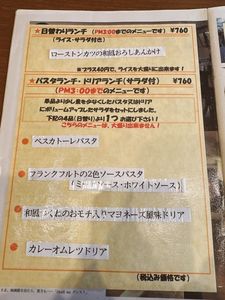 ☆日替わりランチ (PM3:00までのメニューです) ¥760
(ライス・サラダ付き)
ローストンカツの和風おろしあんかけ
※プラス40円で、ライスを大盛りに出来ます!
★パスタランチ・ドリアランチ(サラダ付) ¥760
(PM3:00までのメニューです)
単品より少し量を少なくしたパスタ又はドリア
にボリュームアップしたサラダをセットにしました。
下記の4品(日替り)より1つお選び下さい!
こちらのメニューは、大盛り出来ません!
ペスカトーレパスタ
フランクフルトの2色ソースパスタ
ソース・ホワイトソース)
和風 くねのおモチ入りマヨネーズ風味ドリア
カレーオムレツドリア
(税込み価格です)